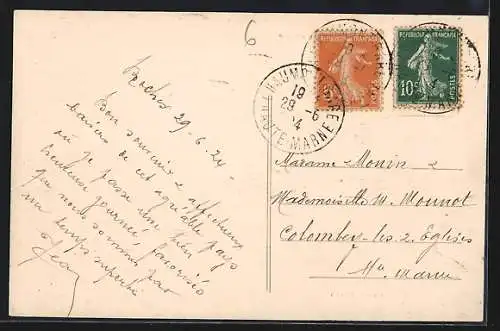 6
REPUBLIQUE FRANCAISE
REPUBLIQUE FRANCAISE
10c
POSTES
CHAUMONT-GARE
19
29 -6
24
HTE MARNE
29-6-24-
Bon souvenir & affectueux
baisers de cet agréable pays
où je passe une bien
heureuse journée, favorisés
que nous sommes par
un temps superbe
Jean
Madame Monin &
Mademoiselle M. Mounot
Colombey-les-2 Eglises
Hte Marne